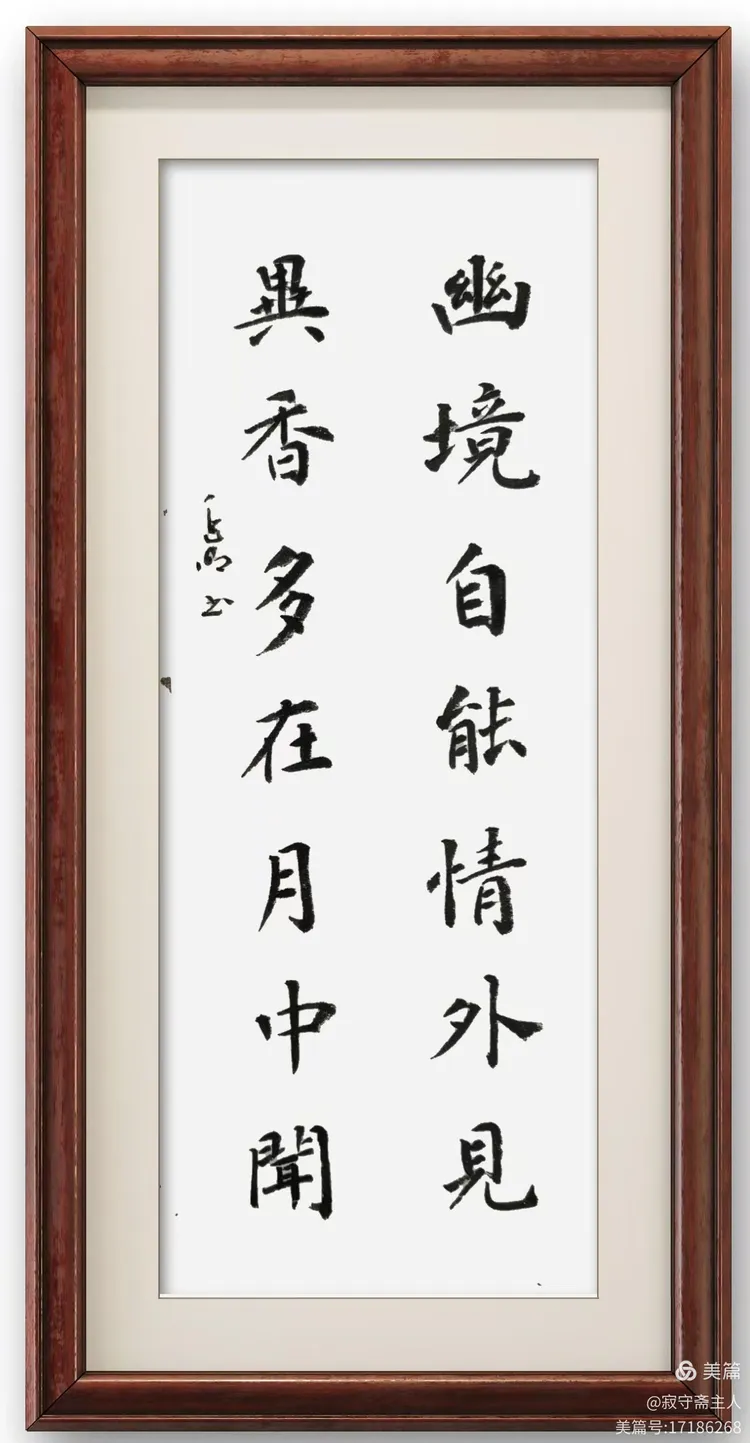 幽境自能情外見
異香多在月中聞
美篇
@寂守斋主人
美篇号:17186268